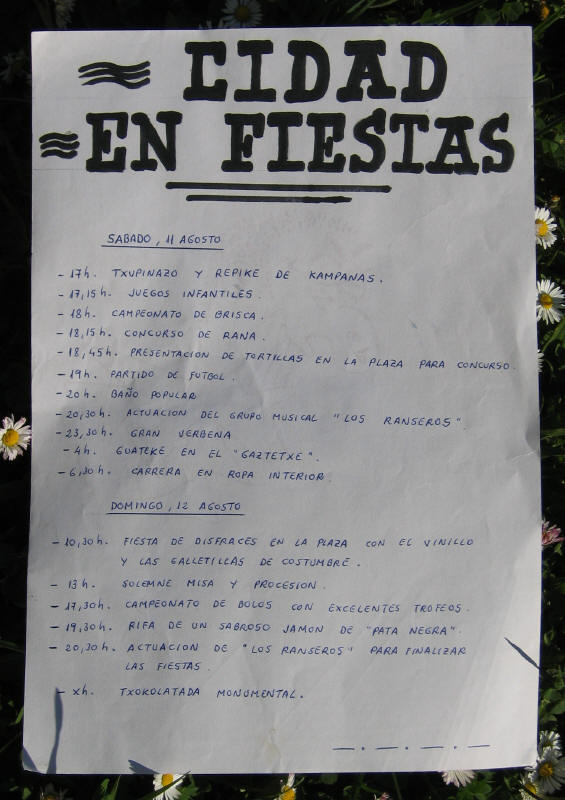 CIDAD
EN FIESTAS
SABADO, 11 AGOSTO
- 17h. TXUPINAZO Y REPIKE DE KAMPANAS.
- 17,15h. JUEGOS INFANTILES.
- 18h. CAMPEONATO DE BRISCA.
- 18,15h. CONCURSO DE RANA.
- 18,45h. PRESENTACION DE TORTILLAS EN LA PLAZA PARA CONCURSO.
- 19h. PARTIDO DE FUTBOL.
- 20h. BAÑO POPULAR
- 20,30h. ACTUACION DEL GRUPO MUSICAL "LOS RANSEROS".
- 23,30h. GRAN VERBENA
- 4h. GUATEKE EN EL "GAZTETXE".
- 6,30h. CARRERA EN ROPA INTERIOR.
DOMINGO, 12 AGOSTO
- 10,30h. FIESTA DE DISFRACES EN LA PLAZA CON EL VINILLO
Y LAS GALLETILLAS DE COSTUMBRE.
- 13h. SOLEMNE MISA Y PROCESION.
- 17,30h. CAMPEONATO DE BOLOS CON EXCELENTES TROFEOS.
- 19,30h. RIFA DE UN SABROSO JAMON DE "PATA NEGRA".
- 20,30h. ACTUACION DE "LOS RANSEROS" PARA FINALIZAR
LAS FIESTAS.
- xh. TXOKOLATADA MONUMENTAL.